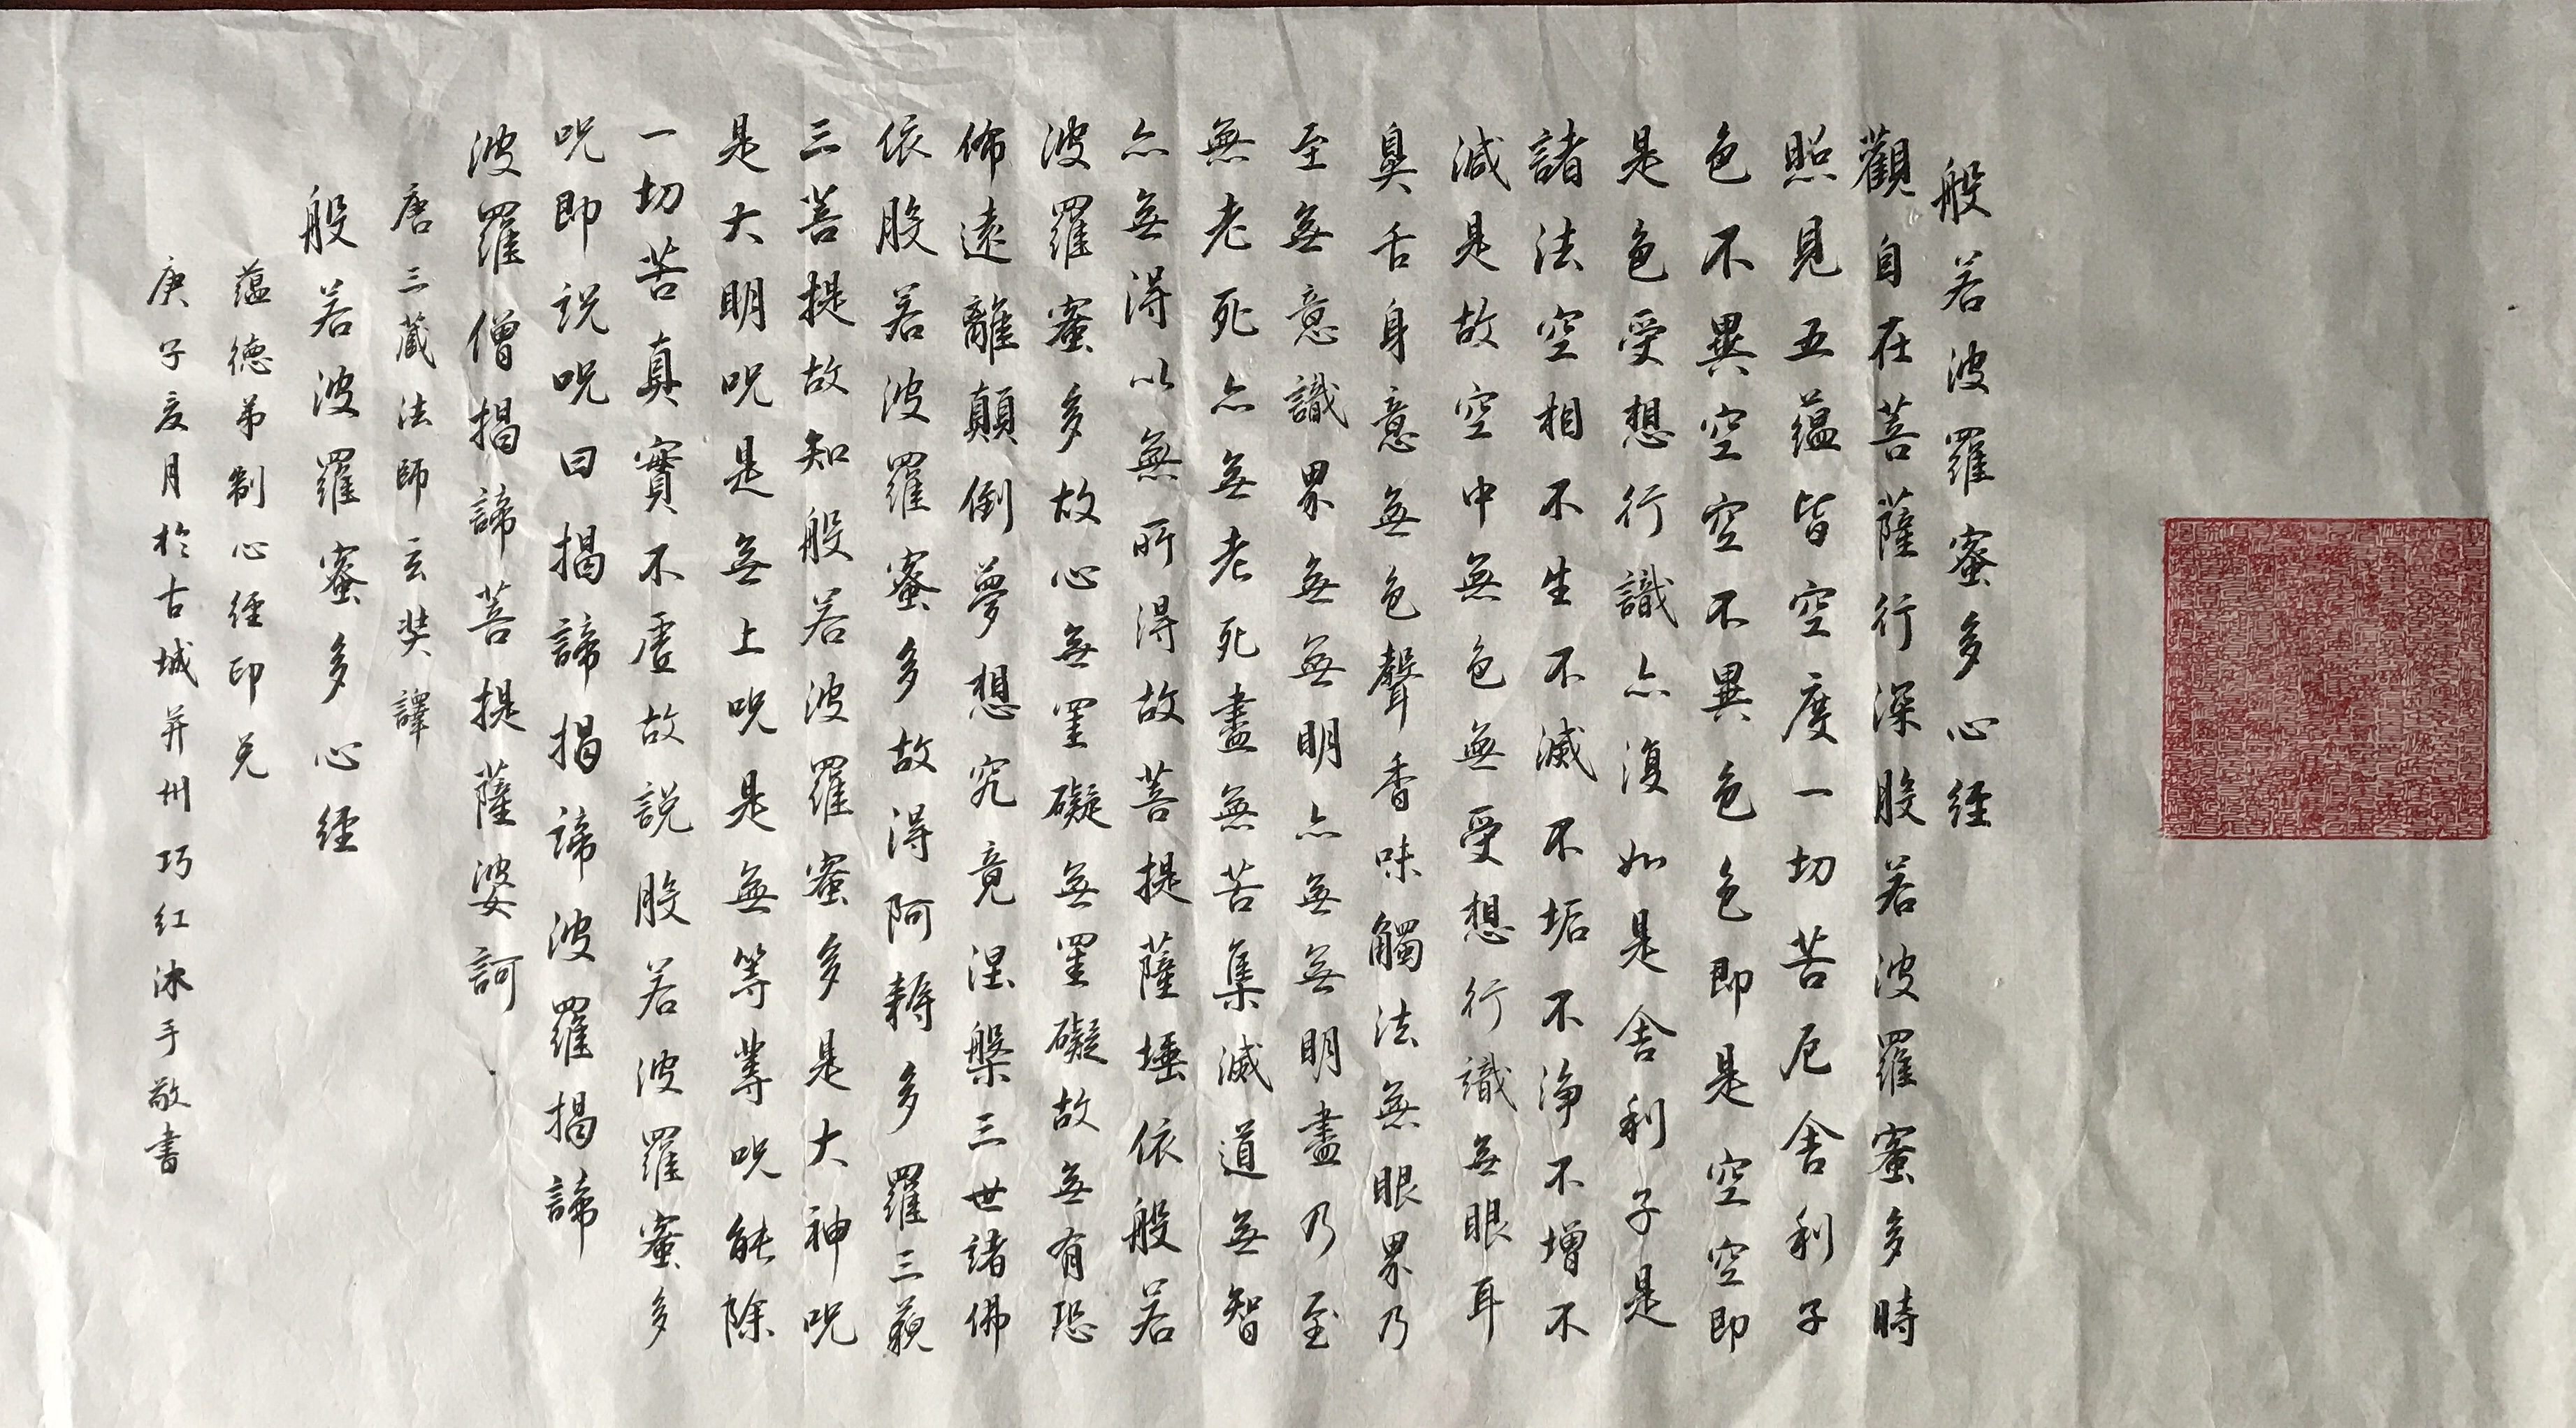 般若波羅蜜多心經
觀自在菩薩行深般若波羅蜜多時
照見五蘊皆空度一切苦厄舍利子
色不異空空不異色色即是空空即
是色受想行識亦復如是舍利子是
諸法空相不生不滅不垢不淨不增不
減是故空中無色無受想行識無眼耳
鼻舌身意無色聲香味觸法無眼界乃
至無意識界無無明亦無無明盡乃至
無老死亦無老死盡無苦集滅道無智
亦無得以無所得故菩提薩埵依般若
波羅蜜多故心無罣礙無罣礙故無有恐
怖遠離顛倒夢想究竟涅槃三世諸佛
依般若波羅蜜多故得阿耨多羅三藐
三菩提故知般若波羅蜜多是大神咒
是大明咒是無上咒是無等等咒能除
一切苦真實不虛故説般若波羅蜜多
咒即説咒曰揭諦揭諦波羅揭諦
波羅僧揭諦菩提薩婆訶
唐三藏法師玄奘譯
般若波羅蜜多心經
蘊德弟制心經印兄
庚子夏月於古城并州巧红沐手敬書